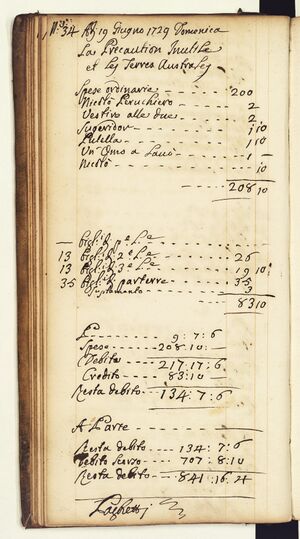 N.° 34 Adj 19 Giugno 1729 Domenica
La Precaution Inutile
et les Terres Australes
Spese ordinarie 200
Niccolò Peruchiero 2
Vestire alle due 2
Sugeridor 1 10
Putella 1 10
Un Omo a Lavò 1 –
Niccolò 10
208 10
– bigl: di p.e L.e
13 bigl: di 2.e L.e 26
13 bigl: di 3.e L.e 19 10
35 bigl: di parterre 35
Suplemento 3
83 10
P. 9 : 7 : 6
Spese 208 : 10
Debito 217 : 17 : 6
Credito 83 : 10
Resta debito 134 : 7 : 6
A Parte
Resta debito 134 : 7 : 6
debito scorso 707 : 8 : 10
Resta debito 841 : 16 : 4
Paghetti